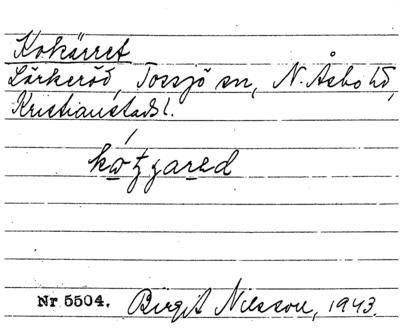 Kokärret
Lärkeröd, Tossjö sn, N. Åsbo hd,
Kristianstads l.
Nr 5504. Birgit Nilsson, 1943.